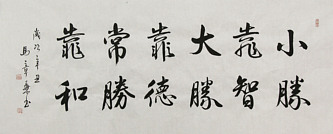 小勝
靠智
大勝
靠德
常勝
靠和
歲次辛丑